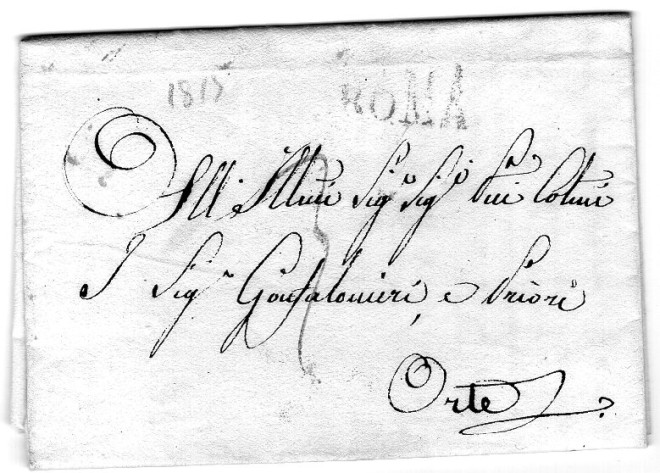 1815 ROMA
Alli Illmi Sigri Sigri Pni Colmi
I Sigri Gonfalonieri, e Priori
Orte